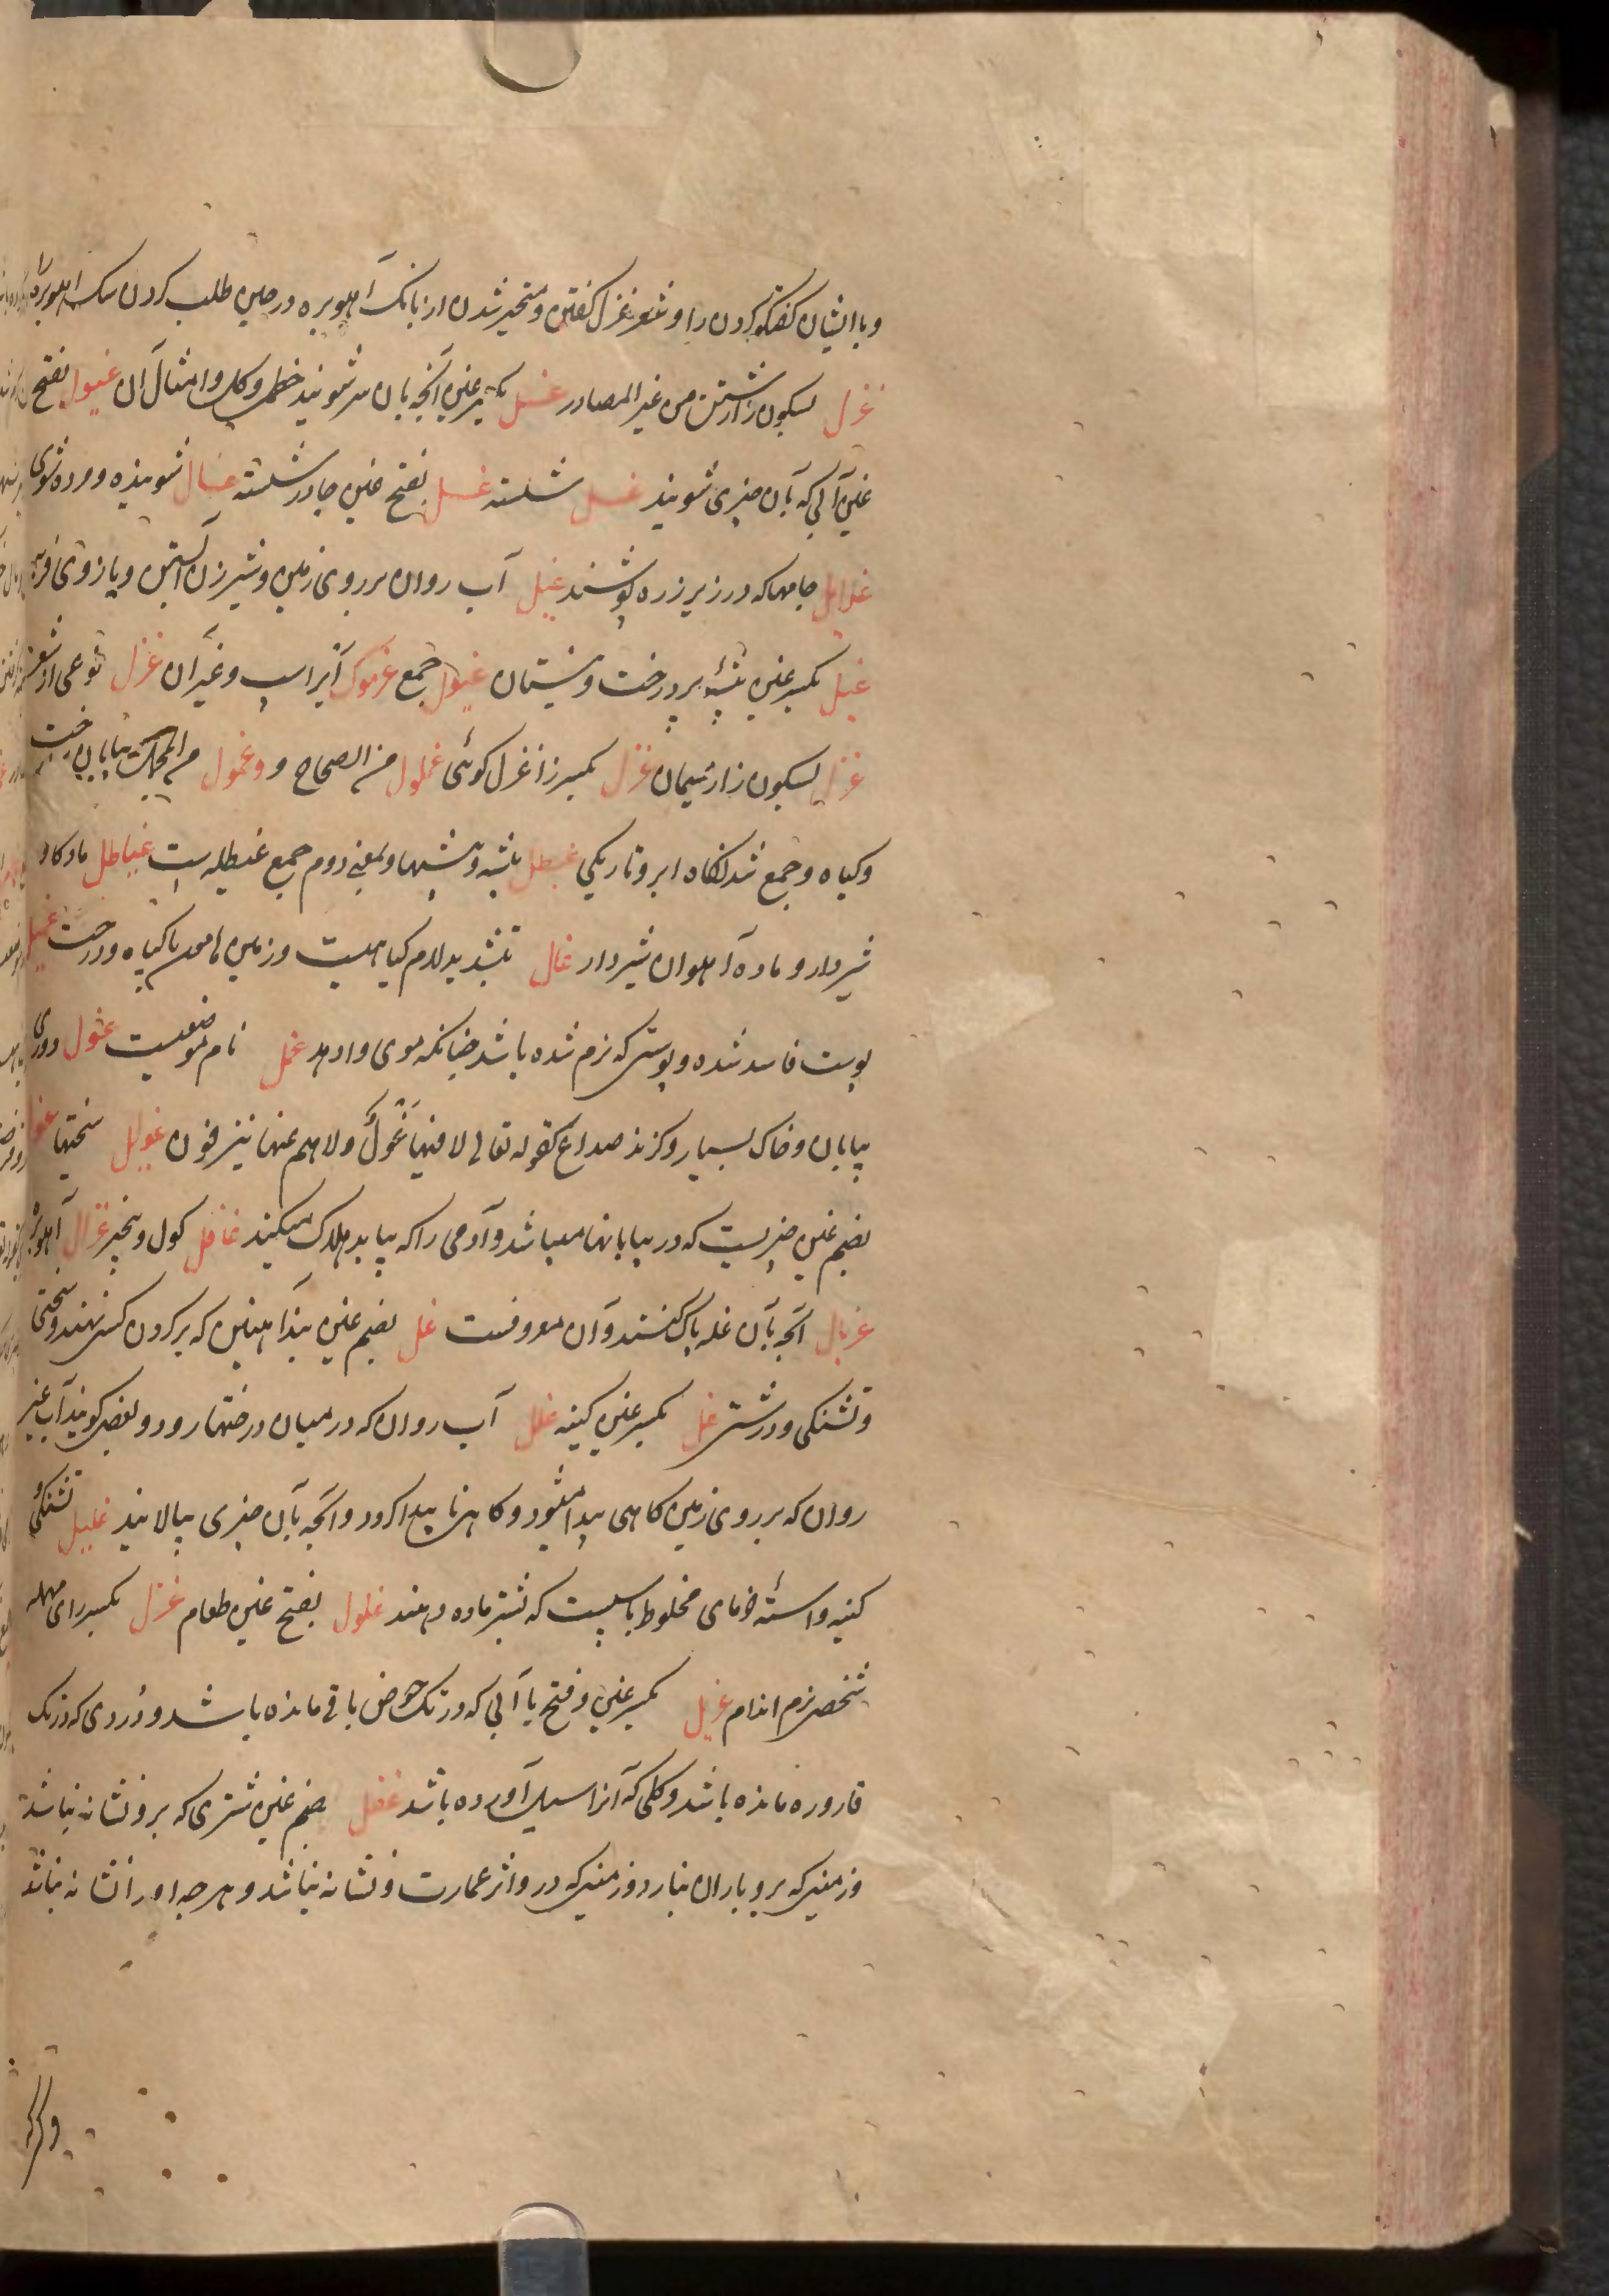 و با ایشان کفتکو کردن را و شعر غزل کفتن و متحیر شدن از بانک آهو بره در حین طلب کردن سک آهو بره را
غزل بسکون زا رشتن من غیر المصادر غسل بکسر غین آنچه بآن سر شویند خطمی و کل و امثال آن غسول بفتح
غین آبی که بآن چیزی شویند غسل شسته غسیل بفتح غین جادر شسته غسال شوینده و مرده شوی
غلایل جامها که در زیر زره پوشند غیل آب روان بر روی زمین و شیر زن آبستن و بازوی فربه
غیل بکسر غین بیشه پر درخت و نیستان غیول جمع غرمول آیر اسب و غیر آن غزل نوعی از شعر
غزل بسکون زا ریسمان غزل بکسر زا غزل کوئی غملول من الصحاح و وغمول من المجمل بیابان درخت
و کیاه و جمع شدنکاه ابر و تاریکی غیطل بیشه و بیشها و بمعنی دوم جمع غیطله است غیاطل ماده کاو
شیردار و ماده آهوان شیردار غال بتشدید لام کیاهیست و زمین هامون با کیاه و درخت غمیل
پوست فاسد شده و پوستی که نرم شده باشد چنانکه موی وادهد غمل نام موضعیست غول دوری
بیابان و خاک بسیار و کزند صداع کقوله تعالی لا فیها غول ولا هم عنها ینزفون غوایل سختیها غول
بضم غین چیزیست که در بیابانها میباشد و آدمی را که بیابد هلاک میکند غافل کول و بیخبر غزال آهو بره
غربال آنچه بآن غله پاک کنند و آن معروفست غل بضم غین بند آهنین که بر کردن کسی نهند و سختی
و تشنکی و درشتی غل بکسر غین کینه غلل آب روان که در میان درختها رود و بعضی کویند آب غیر
روان که بر روی زمین کاهی پیدا میشود و کاهی ناپیدا کردد و آنچه بآن چیزی بپالایند غلیل تشنکی و
کینه و استهٔ خرمای مخلوط باسپست که بشتر ماده دهند غلول بفتح غین طعام غرل بکسر رای مهمله
شخص نرم اندام غریل بکسر غین و فتح یا آبی که در تک حوض باقی مانده باشد و دردی که در تک
قاروره مانده باشد و کلی که آنرا سیل آورده باشد غفل بضم غین شتری که برو نشانه نباشد
و زمینی که برو باران نبارد و زمینی که درو اثر عمارت و نشانه نباشد و هرچه او را نشانه نباشد